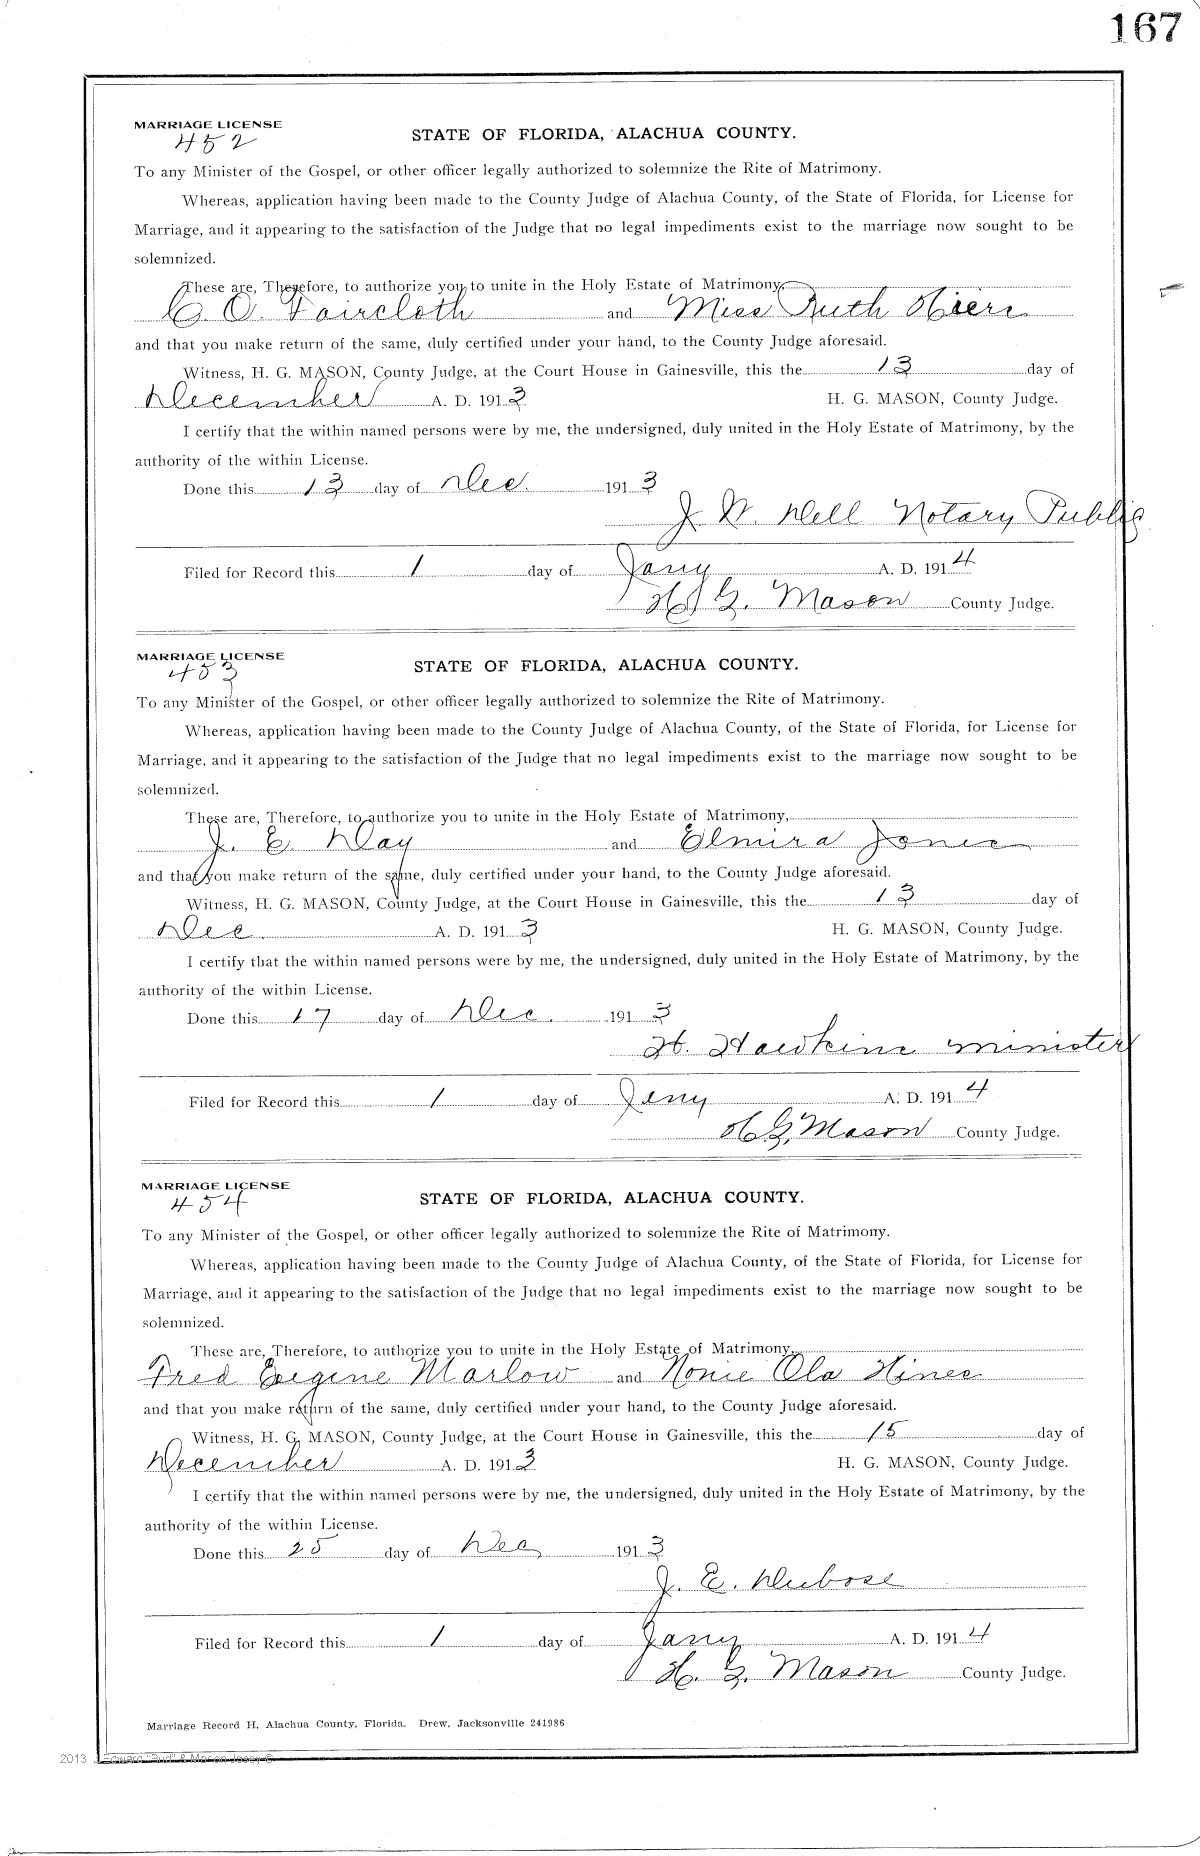 167
MARRIAGE LICENSE
452
STATE OF FLORIDA, ALACHUA COUNTY.
To any Minister of the Gospel, or other officer legally authorized to solemnize the Rite of Matrimony.
Whereas, application having been made to the County Judge of Alachua County, of the State of Florida, for License for
Marriage, and it appearing to the satisfaction of the Judge that no legal impediments exist to the marriage now sought to be
solemnized.
These are, Therefore, to authorize you to unite in the Holy Estate of Matrimony,
C. O. Faircloth and Miss Ruth Hiers
and that you make return of the same, duly certified under your hand, to the County Judge aforesaid.
Witness, H. G. MASON, County Judge, at the Court House in Gainesville, this the 13 day of
December A. D. 1913 H. G. MASON, County Judge.
I certify that the within named persons were by me, the undersigned, duly united in the Holy Estate of Matrimony, by the
authority of the within License.
Done this 13 day of Dec. 1913
J. W. Dell Notary Public
Filed for Record this 1 day of Jany A. D. 1914
H. G. Mason County Judge.
MARRIAGE LICENSE
453
STATE OF FLORIDA, ALACHUA COUNTY.
To any Minister of the Gospel, or other officer legally authorized to solemnize the Rite of Matrimony.
Whereas, application having been made to the County Judge of Alachua County, of the State of Florida, for License for
Marriage, and it appearing to the satisfaction of the Judge that no legal impediments exist to the marriage now sought to be
solemnized.
These are, Therefore, to authorize you to unite in the Holy Estate of Matrimony,
J. E. Day and Elmira Jones
and that you make return of the same, duly certified under your hand, to the County Judge aforesaid.
Witness, H. G. MASON, County Judge, at the Court House in Gainesville, this the 13 day of
Dec. A. D. 1913 H. G. MASON, County Judge.
I certify that the within named persons were by me, the undersigned, duly united in the Holy Estate of Matrimony, by the
authority of the within License.
Done this 17 day of Dec. 1913
H. Hawkins minister
Filed for Record this 1 day of Jany A. D. 1914
H. G. Mason County Judge.
MARRIAGE LICENSE
454
STATE OF FLORIDA, ALACHUA COUNTY.
To any Minister of the Gospel, or other officer legally authorized to solemnize the Rite of Matrimony.
Whereas, application having been made to the County Judge of Alachua County, of the State of Florida, for License for
Marriage, and it appearing to the satisfaction of the Judge that no legal impediments exist to the marriage now sought to be
solemnized.
These are, Therefore, to authorize you to unite in the Holy Estate of Matrimony,
Fred Eugine Marlow and Nonie Ola Hines
and that you make return of the same, duly certified under your hand, to the County Judge aforesaid.
Witness, H. G. MASON, County Judge, at the Court House in Gainesville, this the 15 day of
December A. D. 1913 H. G. MASON, County Judge.
I certify that the within named persons were by me, the undersigned, duly united in the Holy Estate of Matrimony, by the
authority of the within License.
Done this 25 day of Dec 1913
J. E. Dubose
Filed for Record this 1 day of Jany A. D. 1914
H. G. Mason County Judge.
Marriage Record H, Alachua County, Florida. Drew, Jacksonville 241986
2013 J Edward "Bud" & Marion Josey ©